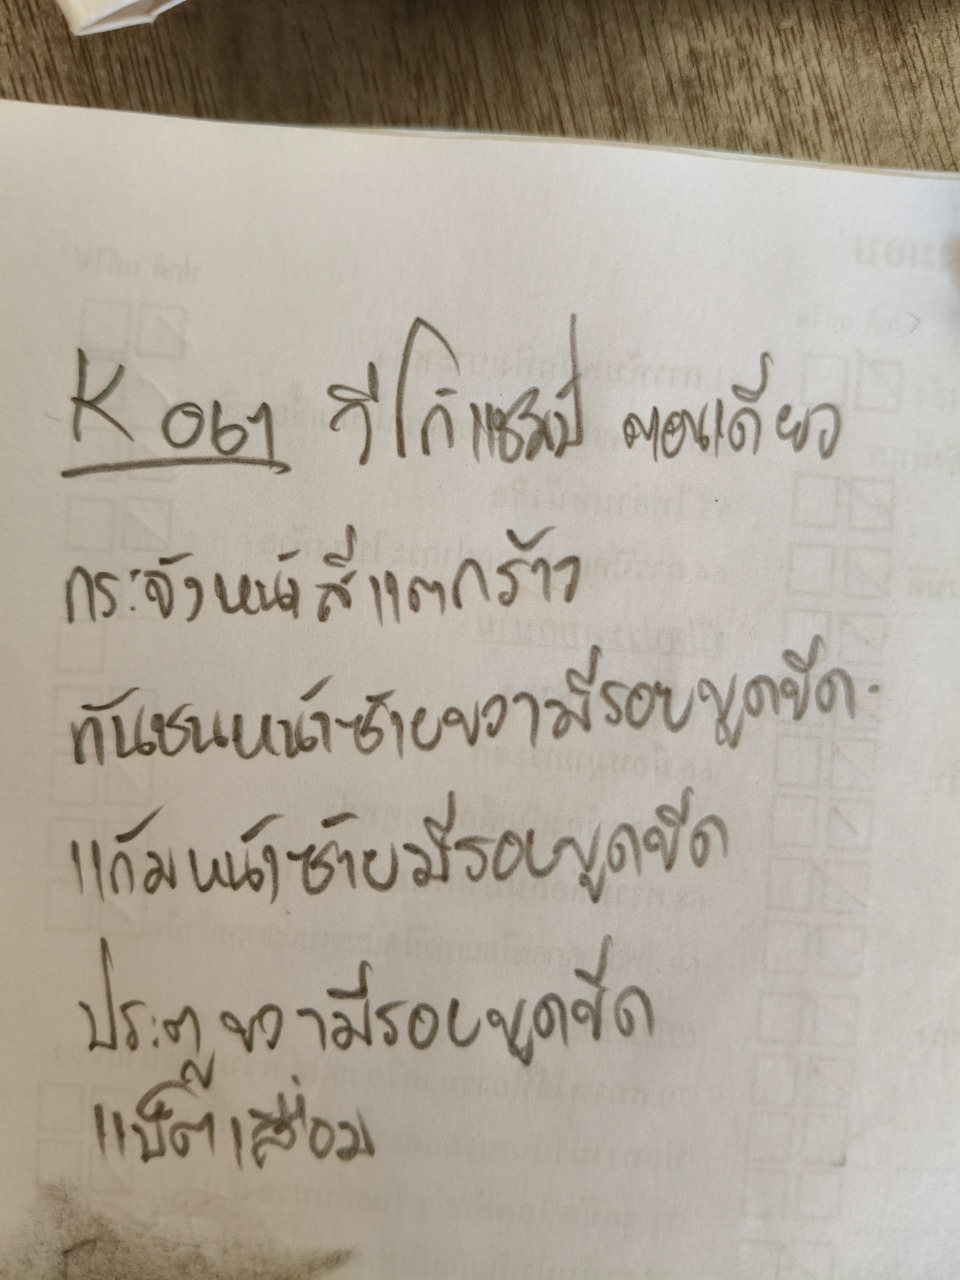 K 067 วีโก้แชมป์ ตอนเดียว
กระจังหน้าสีแตกร้าว
กันชนหน้าซ้ายขวามีรอยขูดขีด.
แก้มหน้าซ้ายมีรอยขูดขีด
ประตูขวามีรอยขูดขีด
แบ็ตเสื่อม